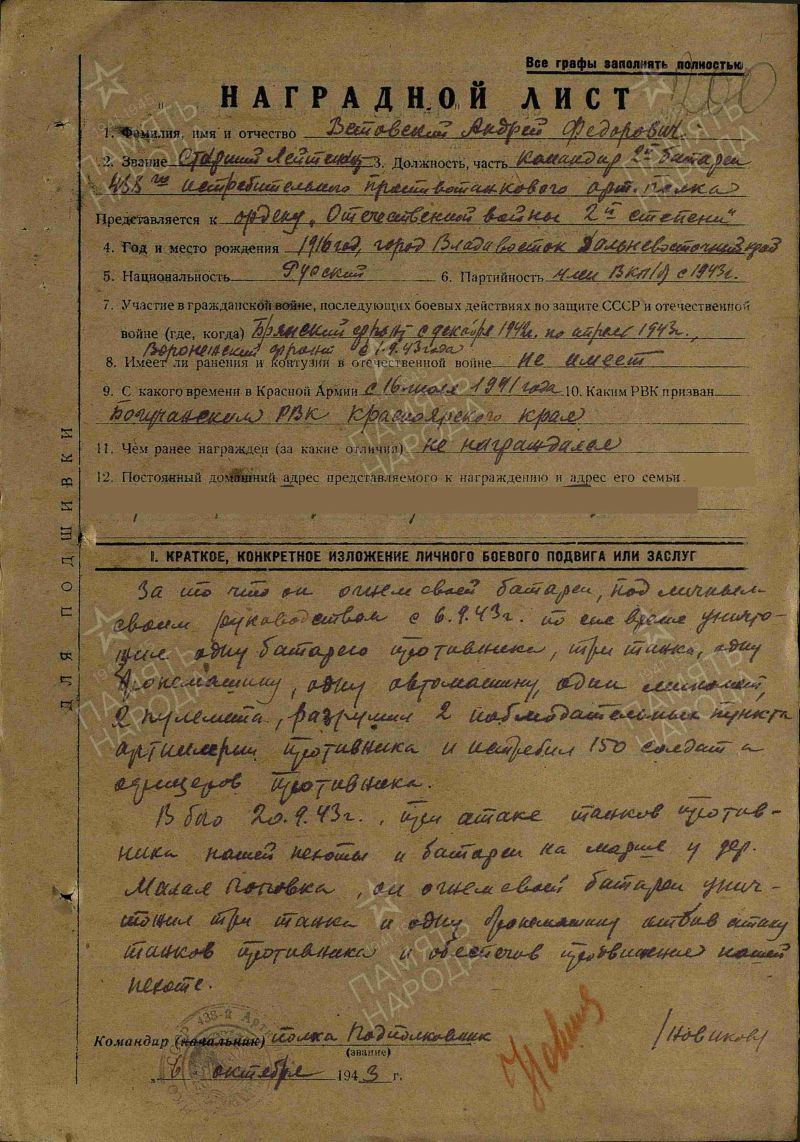 Все графы заполнять полностью
200
НАГРАДНОЙ ЛИСТ
1. Фамилия, имя и отчество Ветовский Андрей Федорович.
2. Звание Старший Лейтенант 3. Должность, часть Командир 2й батареи
438го истребительного противотанкового арт. полка
Представляется к ордену „Отечественной войны 2й степени"
4. Год и место рождения 1916 год, город Владивосток Дальневосточный край
5. Национальность Русский 6. Партийность член ВКП(б) с 1943г.
7. Участие в гражданской войне, последующих боевых действиях по защите СССР и отечественной
войне (где, когда) Брянский фронт с декабря 1942г. по апрель 1943г.,
Воронежский фронт с 1.9.43 года
8. Имеет ли ранения и контузии в отечественной войне не имеет
9. С какого времени в Красной Армии с 16 июля 1941 года 10. Каким РВК призван
Богучанском РВК Красноярского края
11. Чем ранее награжден (за какие отличия) не награждался
12. Постоянный домашний адрес представляемого к награждению и адрес его семьи.
ДЛЯ ПОДШИВКИ
I. КРАТКОЕ, КОНКРЕТНОЕ ИЗЛОЖЕНИЕ ЛИЧНОГО БОЕВОГО ПОДВИГА ИЛИ ЗАСЛУГ
За то что он огнем своей батареи, под личным
своим руководством с 6.9.43г. по сие время уничто-
жил одну батарею противника, три танка, одну
бронемашину, одну автомашину, один миномет,
2 пулемета, разрушил 2 наблюдательных пункта
артиллерии противника и истребил 150 солдат и
офицеров противника.
В бою 20.9.43г., при атаке танков против-
ника нашей пехоты и батареи на марше у дер.
Малая Поповка, он огнем своей батареи унич-
тожил три танка и одну бронемашину отбив атаку
танков противника и обеспечив продвижение нашей
пехоте.
Командир (начальник) полка Подполковник /Новиков/
(звание)
„6" октября 1943 г.
ПАМЯТЬ НАРОДА